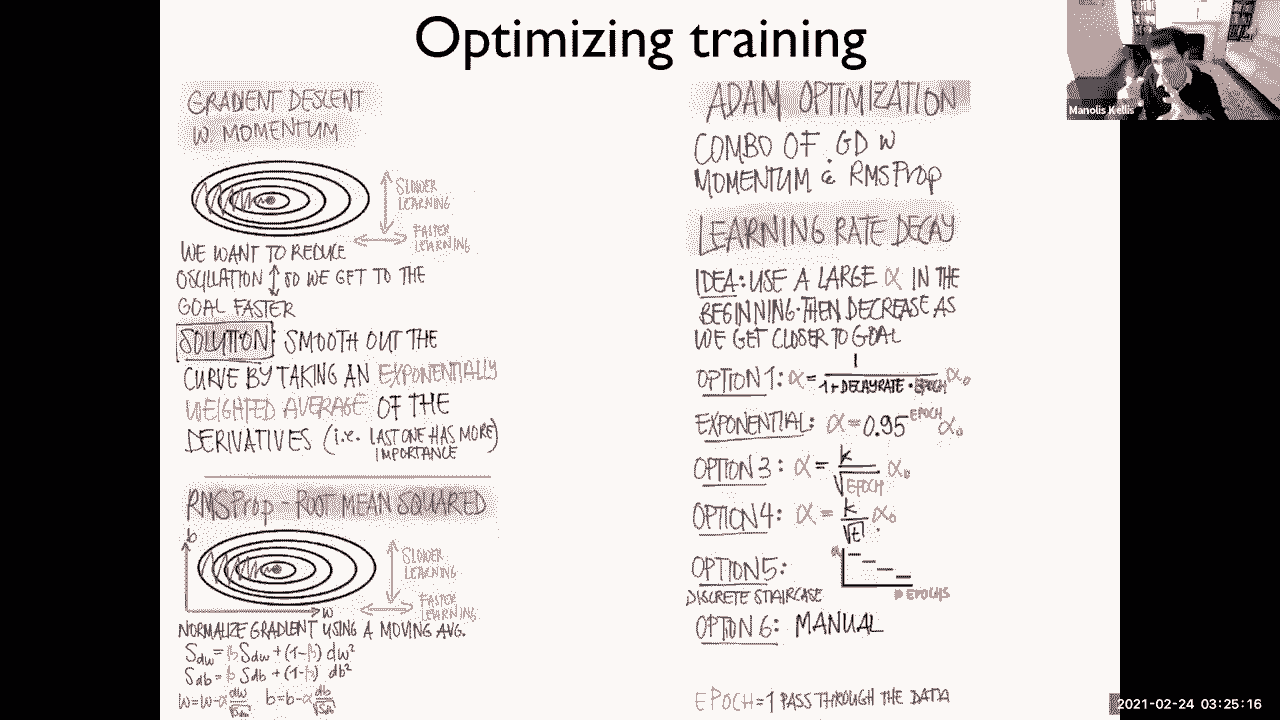 Optimizing training
Manolis Kellis
GRADIENT DESCENT
W MOMENTUM
SLOWER
LEARNING
FASTER
LEARNING
WE WANT TO REDUCE
OSCILLATION ↕ SO WE GET TO THE
GOAL FASTER
SOLUTION: SMOOTH OUT THE
CURVE BY TAKING AN EXPONENTIALLY
WEIGHTED AVERAGE OF THE
DERIVATIVES (i.e. LAST ONE HAS MORE
IMPORTANCE)
RMSProp - ROOT MEAN SQUARED
b
SLOWER
LEARNING
FASTER
LEARNING
w
NORMALIZE GRADIENT USING A MOVING AVG.
Sdw = β Sdw + (1-β) dw²
Sdb = β Sdb + (1-β) db²
w = w - α dw/√Sdw b = b - α db/√Sdb
ADAM OPTIMIZATION
COMBO OF GD W
MOMENTUM & RMSProp
LEARNING RATE DECAY
IDEA: USE A LARGE α IN THE
BEGINNING. THEN DECREASE AS
WE GET CLOSER TO GOAL
OPTION 1: α = 1/(1 + DECAYRATE · EPOCH) α₀
EXPONENTIAL: α = 0.95^EPOCH α₀
OPTION 3: α = k/√EPOCH α₀
OPTION 4: α = k/√t α₀
OPTION 5:
DISCRETE STAIRCASE
α
EPOCHS
OPTION 6: MANUAL
EPOCH = 1 PASS THROUGH THE DATA
2021-02-24 03:25:16